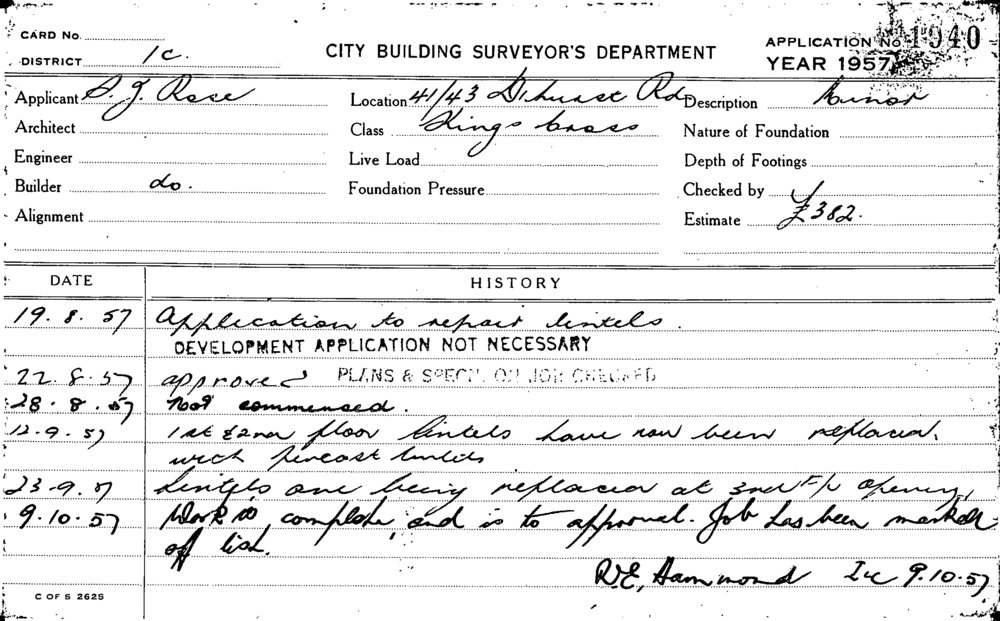 CARD No.
DISTRICT 1c
CITY BUILDING SURVEYOR'S DEPARTMENT
APPLICATION No. 1940
YEAR 1957
Applicant S. J. Rose
Location 41/43 Rd
Description Minor
Architect
Class Kings Cross
Nature of Foundation
Engineer
Live Load
Depth of Footings
Builder do.
Foundation Pressure
Checked by
Alignment
Estimate £382.
DATE HISTORY
19. 8. 57 Application to repair lintels.
DEVELOPMENT APPLICATION NOT NECESSARY
22. 8. 57 approved PLANS & SPECN. ON JOB CHECKED
28. 8. 57 Not commenced.
12. 9. 57 1st & 2nd floor lintels have now been replaced
with precast lintels
23. 9. 57 Lintels are being replaced at 3rd F/L opening,
9. 10. 57 Work is complete and is to approval. Job has been marked
off list.
R.E. Hammond 1c 9.10.57
C OF S 2625